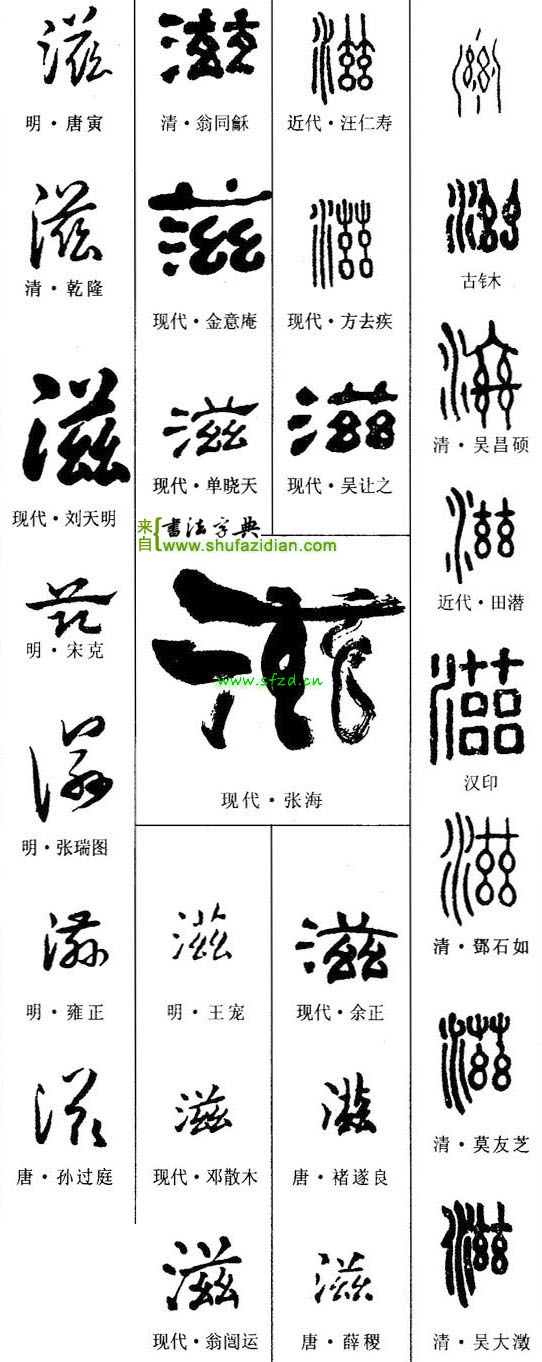 滋
明·唐寅
滋
清·乾隆
滋
现代·刘天明
滋
明·宋克
滋
明·张瑞图
滋
明·雍正
滋
唐·孙过庭
滋
清·翁同龢
滋
现代·金意庵
滋
现代·单晓天
来自{書法字典
www.shufazidian.com
滋
近代·汪仁寿
滋
现代·方去疾
滋
现代·吴让之
滋
www.sfzd.cn
现代·张海
滋
明·王宠
滋
现代·邓散木
滋
现代·翁闿运
滋
现代·余正
滋
唐·褚遂良
滋
唐·薛稷
滋
古钵木
滋
清·吴昌硕
滋
近代·田潜
滋
汉印
滋
清·鄧石如
滋
清·莫友芝
滋
清·吴大澂